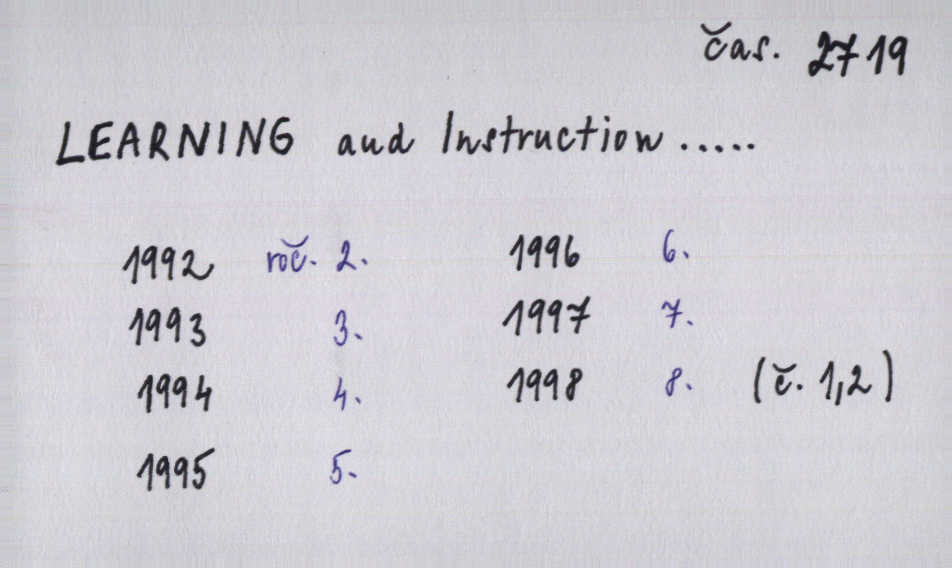 čas. 2719
LEARNING and Instruction.....
1992 roč. 2. 1996 6.
1993 3. 1997 7.
1994 4. 1998 8. (č. 1,2)
1995 5.